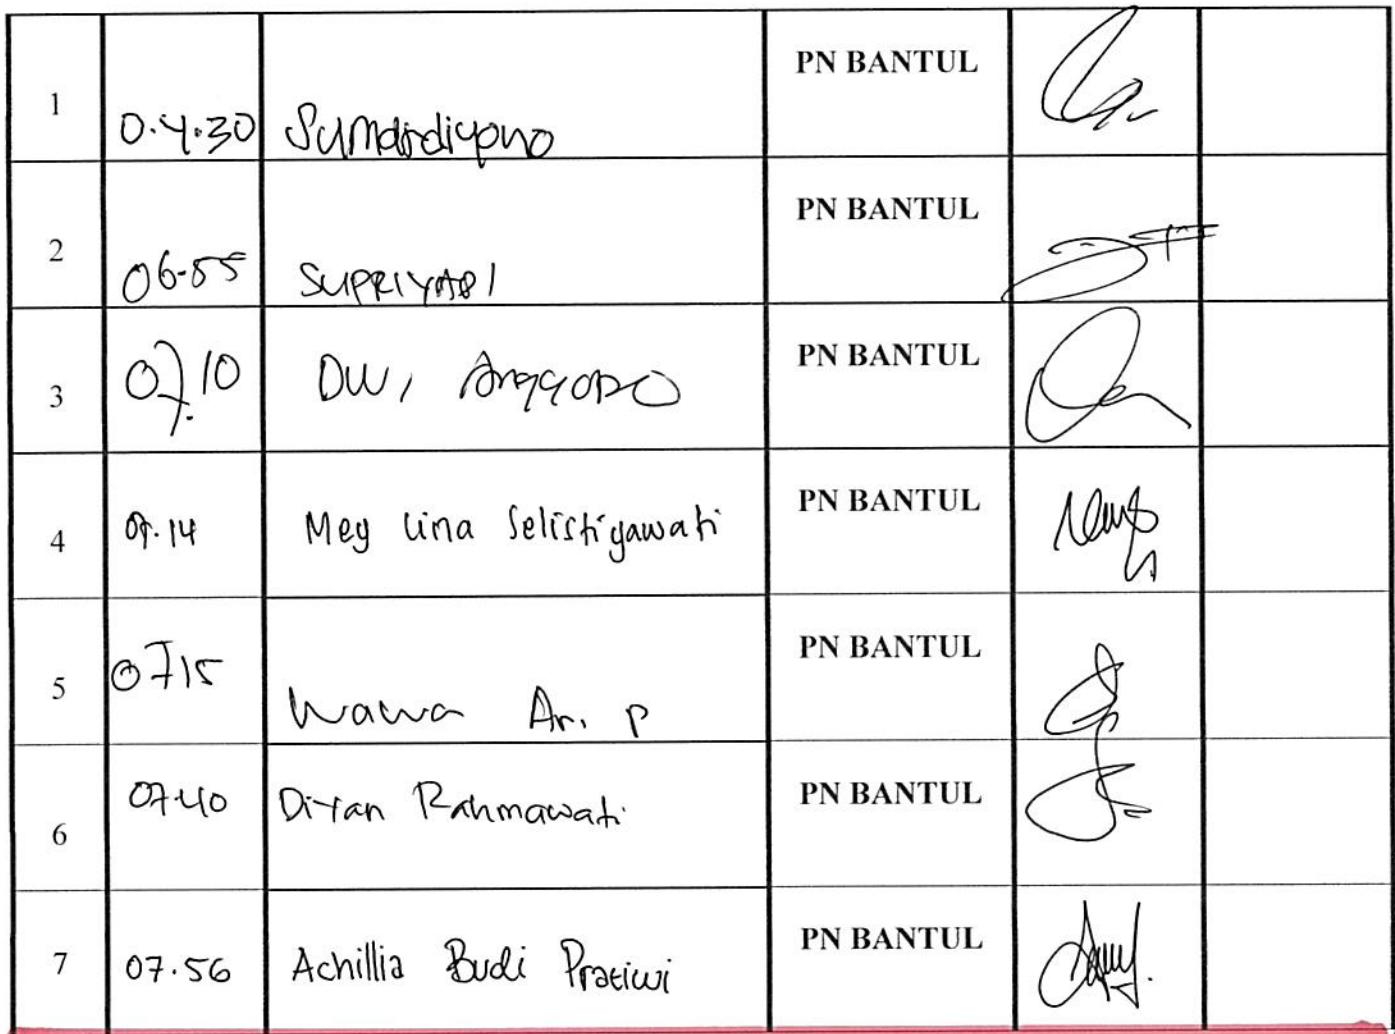 1 0.4.30 Sumardiyono PN BANTUL
2 06.55 SUPRIYADI PN BANTUL
3 07.10 DWI Anggoro PN BANTUL
4 07.14 Mey Lina Selistiyawati PN BANTUL
5 0715 Wawa Ar. P PN BANTUL
6 07.40 Dian Rahmawati PN BANTUL
7 07.56 Achillia Budi Pratiwi PN BANTUL